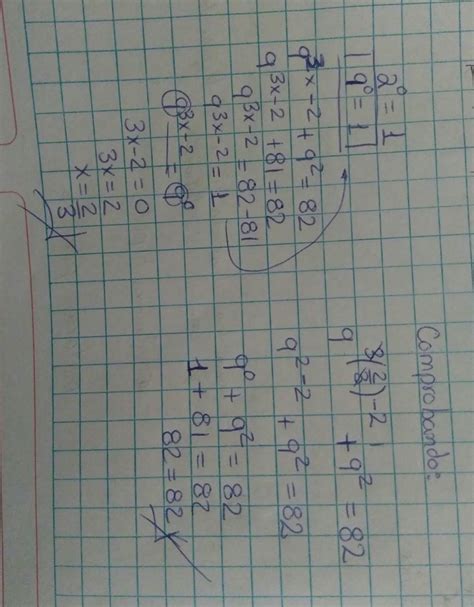 2⁰ = 1
9⁰ = 1
9³ˣ⁻² + 9² = 82
9³ˣ⁻² + 81 = 82
9³ˣ⁻² = 82 - 81
9³ˣ⁻² = 1
9³ˣ⁻² = 9⁰
3x - 2 = 0
3x = 2
x = 2/3
Comprobando:
9³⁽²ᐟ³⁾⁻² + 9² = 82
9²⁻² + 9² = 82
9⁰ + 9² = 82
1 + 81 = 82
82 = 82